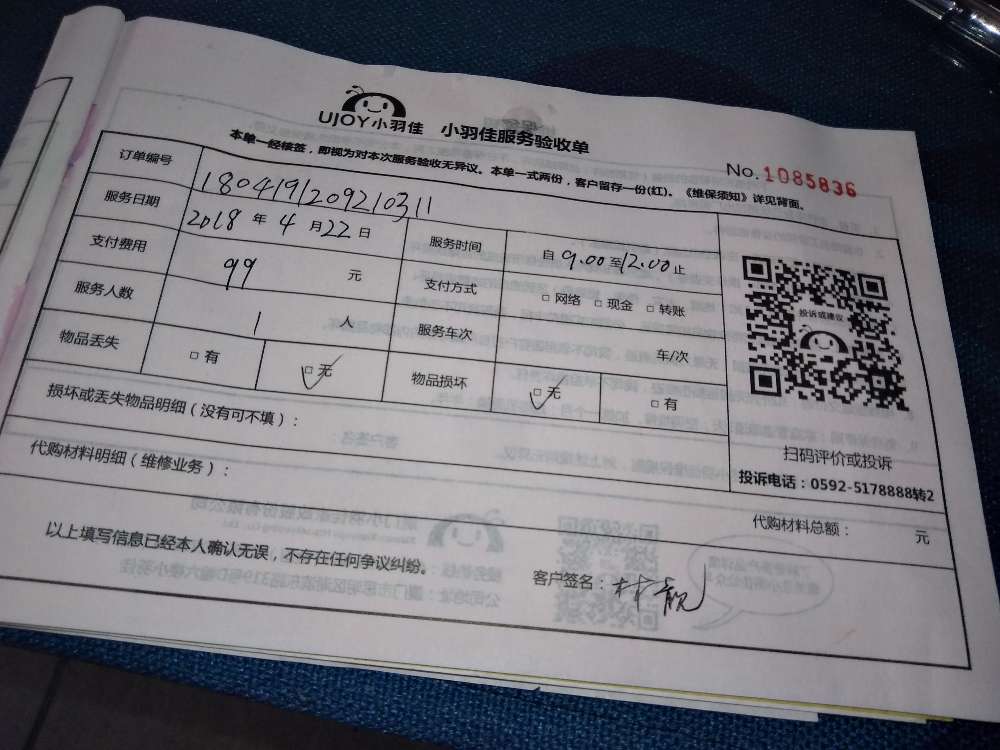 UJOY小羽佳 小羽佳服务验收单
本单一经核签，即视为对本次服务验收无异议。本单一式两份，客户留存一份(红)。《维保须知》详见背面。
No.1085836
订单编号 1804191209210311
服务日期 2018 年 4 月 22 日 服务时间 自 9.00 至 12.00 止
支付费用 99 元 支付方式 □ 网络 □ 现金 □ 转账
服务人数 1 人 服务车次 车/次
物品丢失 □ 有 □ 无 物品损坏 □ 无 □ 有
投诉或建议
扫码评价或投诉
投诉电话：0592-5178888转2
损坏或丢失物品明细（没有可不填）：
代购材料明细（维修业务）：
代购材料总额： 元
以上填写信息已经本人确认无误，不存在任何争议纠纷。
客户签名：林靓